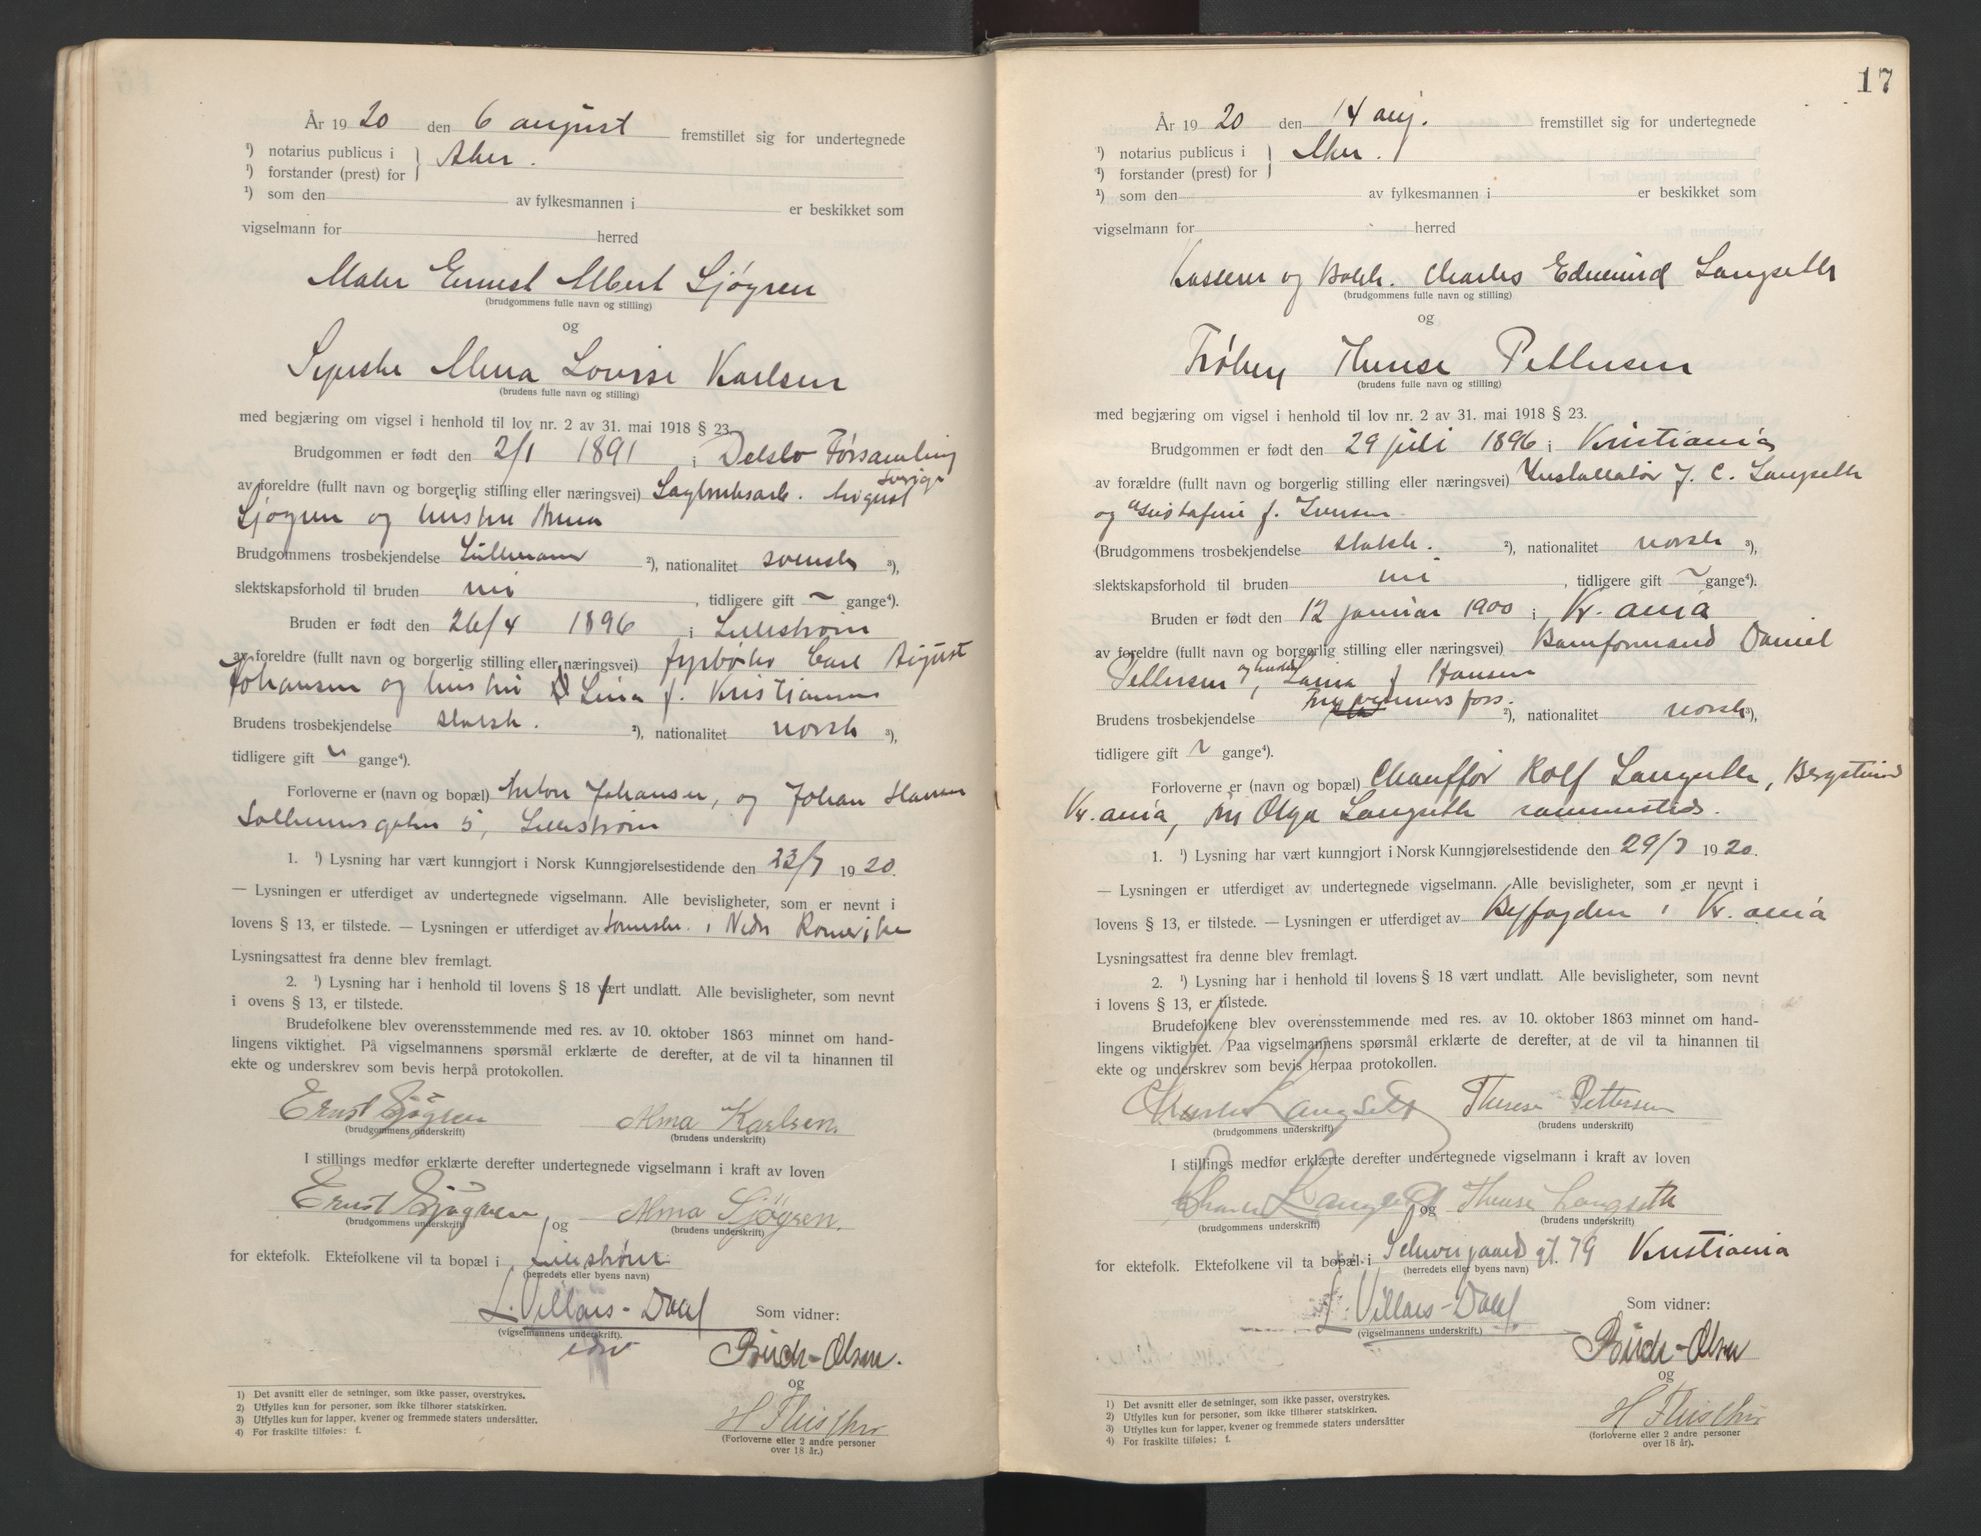 År 1920 den 6 august fremstillet sig for undertegnede
¹) notarius publicus i } Aker.
¹) forstander (prest) for
¹) som den av fylkesmannen i er beskikket som
vigselmann for herred
Maler Ernest Albert Sjögren
(brudgommens fulle navn og stilling)
og
Syerske Alma Lovise Karlsen
(brudens fulle navn og stilling)
med begjæring om vigsel i henhold til lov nr. 2 av 31. mai 1918 § 23.
Brudgommen er født den 2/1 1891 i Delsbo Församling
Sverige
av foreldre (fullt navn og borgerlig stilling eller næringsvei) Sagbruksarb. August
Sjögren og hustru Anna
Brudgommens trosbekjendelse Lutheraner ²), nationalitet svensk ³),
slektskapsforhold til bruden nei , tidligere gift ~ gange⁴).
Bruden er født den 26/4 1896 i Lillestrøm
av foreldre (fullt navn og borgerlig stilling eller næringsvei) fyrbøter Carl August
Johansen og hustru Lina f. Kristiansen
Brudens trosbekjendelse statsk. ²), nationalitet norsk ³),
tidligere gift ~ gange⁴).
Forloverne er (navn og bopæl) Anton Johansen, og Johan Hansen
Solheimsgaten 5, Lillestrøm
1. ¹) Lysning har vært kunngjort i Norsk Kunngjørelsestidende den 23/7 1920.
— Lysningen er utferdiget av undertegnede vigselmann. Alle bevisligheter, som er nevnt i
lovens § 13, er tilstede. — Lysningen er utferdiget av i Nedre Romerike
Lysningsattest fra denne blev fremlagt.
2. ¹) Lysning har i henhold til lovens § 18 vært undlatt. Alle bevisligheter, som nevnt
i ovens § 13, er tilstede.
Brudefolkene blev overensstemmende med res. av 10. oktober 1863 minnet om hand-
lingens viktighet. På vigselmannens spørsmål erklærte de derefter, at de vil ta hinannen til
ekte og underskrev som bevis herpå protokollen.
Ernst Sjögren Alma Karlsen.
(brudgommens underskrift) (brudens underskrift)
I stillings medfør erklærte derefter undertegnede vigselmann i kraft av loven
Ernst Sjögren og Alma Sjögren.
(brudgommens underskrift) (brudens underskrift)
for ektefolk. Ektefolkene vil ta bopæl i Lillestrøm
(herredets eller byens navn)
L. Villars-Dahl Som vidner:
(vigselmannens underskrift).
Bück-Olsen.
og
H
(Forloverne eller 2 andre personer
over 18 år.)
1) Det avsnitt eller de setninger, som ikke passer, overstrykes.
2) Utfylles kun for personer, som ikke tilhører statskirken.
3) Utfylles kun for lapper, kvener og fremmede staters undersåtter.
4) For fraskilte tilføies: f.
17
År 1920 den 14 aug. fremstillet sig for undertegnede
¹) notarius publicus i } Aker.
¹) forstander (prest) for
¹) som den av fylkesmannen i er beskikket som
vigselmann for herred
Kasserer og Bokh. Charles Edmund Langseth
(brudgommens fulle navn og stilling)
og
Frøken Therese Pettersen
(brudens fulle navn og stilling)
med begjæring om vigsel i henhold til lov nr. 2 av 31. mai 1918 § 23.
Brudgommen er født den 29 juli 1896 i Kristiania
av forældre (fullt navn og borgerlig stilling eller næringsvei) Installatør J. C. Langseth
og Gustafine f. Iversen
(Brudgommens trosbekjendelse statsk. ²), nationalitet norsk ³),
slektskapsforhold til bruden nei , tidligere gift ~ gange⁴).
Bruden er født den 12 januar 1900 i Kr.ania
av foreldre (fullt navn og borgerlig stilling eller næringsvei) Banformand Daniel
Pettersen og hustru Laura f Hansen
Brudens trosbekjendelse ²), nationalitet norsk ³),
tidligere gift ~ gange⁴).
Forloverne er (navn og bopæl) Chauffør Rolf Langseth,
Kr.ania, frk Olga Langseth sammesteds.
1. ¹) Lysning har vært kunngjort i Norsk Kunngjørelsestidende den 29/7 1920.
— Lysningen er utferdiget av undertegnede vigselmann. Alle bevisligheter, som er nevnt i
lovens § 13, er tilstede. — Lysningen er utferdiget av Byfogden i Kr.ania
Lysningsattest fra denne blev fremlagt.
2. ¹) Lysning har i henhold til lovens § 18 vært undlatt. Alle bevisligheter, som nevnt
i lovens § 13, er tilstede.
Brudefolkene blev overensstemmende med res. av 10. oktober 1863 minnet om hand-
lingens viktighet. Paa vigselmannens spørsmål erklærte de derefter, at de vil ta hinannen til
ekte og underskrev som bevis herpaa protokollen.
Charles Langseth Therese Pettersen
(brudgommens underskrift) (brudens underskrift)
I stillings medfør erklærte derefter undertegnede vigselmann i kraft av loven
Charles Langseth og Therese Langseth
(brudgommens underskrift) (brudens underskrift)
for ektefolk. Ektefolkene vil ta bopæl i Schweigaards gt. 79 Kristiania
(herredets eller byens navn)
L. Villars-Dahl Som vidner:
(vigselmannens underskrift.)
Bück-Olsen
og
H
(forloverne eller 2 andre personer
over 18 år).
1) Det avsnitt eller de setninger, som ikke passer, overstrykes.
2) Utfylles kun for personer, som ikke tilhører statskirken.
3) Utfylles kun for lapper, kvener og fremmede staters undersåtter
4) For fraskilte tilføies: f.